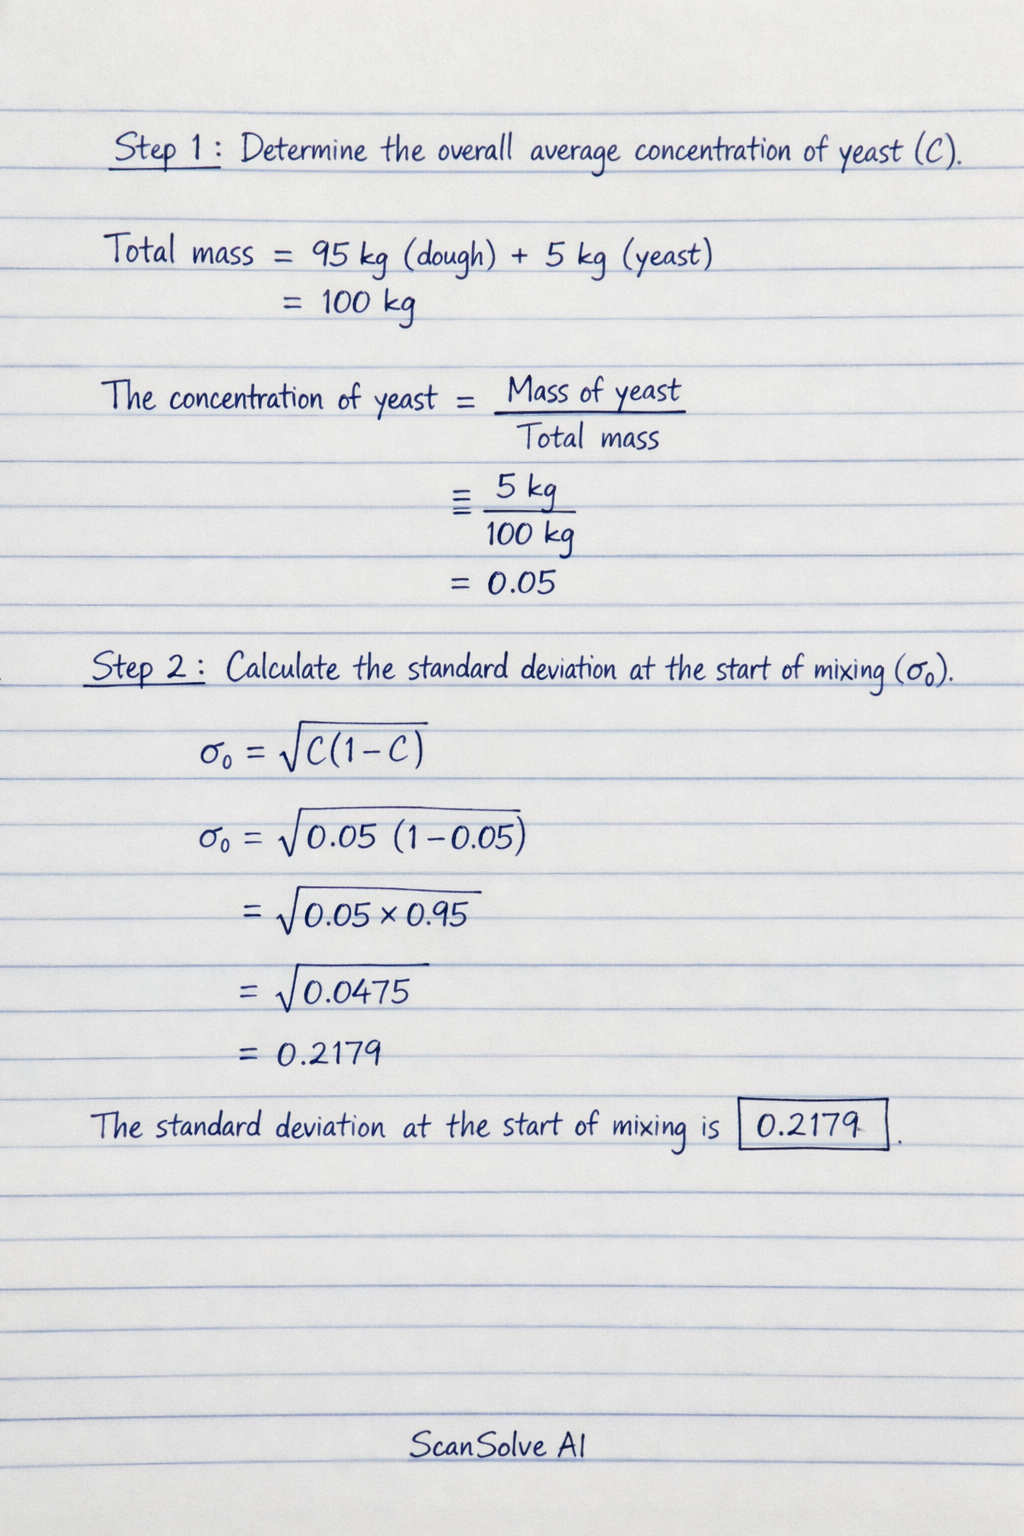 Step 1: Determine the overall average concentration of yeast (C).
Total mass = 95 kg (dough) + 5 kg (yeast)
= 100 kg
The concentration of yeast = Mass of yeast
Total mass
≡ 5 kg
100 kg
= 0.05
Step 2: Calculate the standard deviation at the start of mixing (σ₀).
σ₀ = √C(1-C)
σ₀ = √0.05 (1-0.05)
= √0.05 × 0.95
= √0.0475
= 0.2179
The standard deviation at the start of mixing is 0.2179.
ScanSolve AI